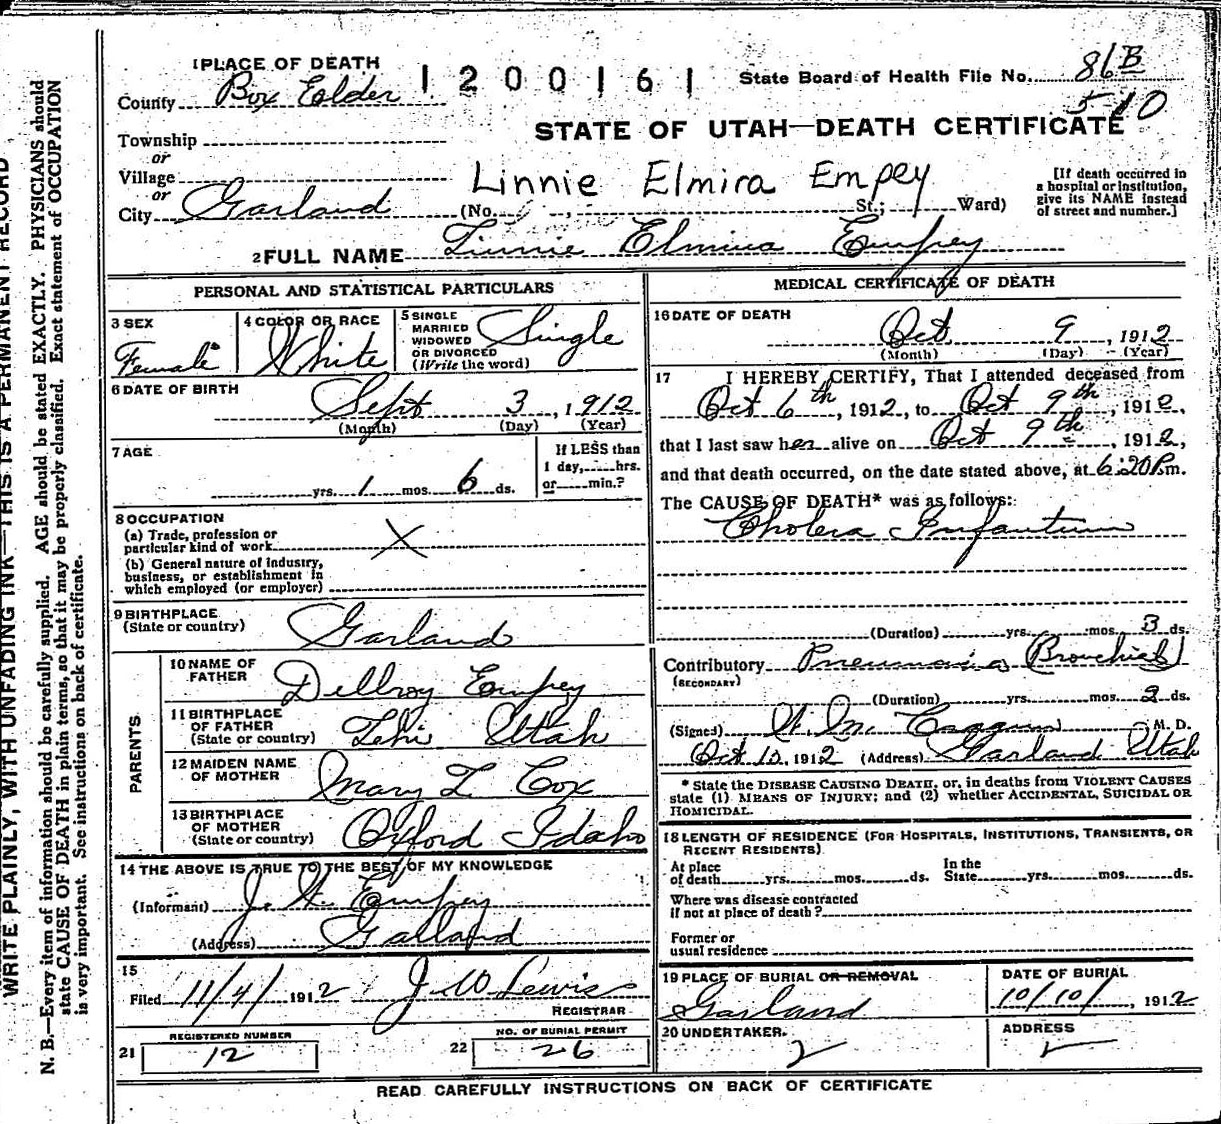 WRITE PLAINLY, WITH UNFADING INK—THIS IS A PERMANENT RECORD
N. B.—Every item of information should be carefully supplied. AGE should be stated EXACTLY. PHYSICIANS should
state CAUSE OF DEATH in plain terms, so that it may be properly classified. Exact statement of OCCUPATION
is very important. See instructions on back of certificate.
1 PLACE OF DEATH
1200161
State Board of Health File No. 86B
County Box Elder
510
STATE OF UTAH—DEATH CERTIFICATE
Township
or
Village
Linnie Elmira Empey
[If death occurred in
a hospital or institution,
give its NAME instead
of street and number.]
or
City Garland (No. , St.; Ward)
2 FULL NAME Linnie Elmira Empey
PERSONAL AND STATISTICAL PARTICULARS
3 SEX
Female
4 COLOR OR RACE
White
5 SINGLE
MARRIED
WIDOWED
OR DIVORCED
(Write the word)
Single
6 DATE OF BIRTH
Sept 3, 1912
(Month) (Day) (Year)
7 AGE
yrs. 1 mos. 6 ds.
If LESS than
1 day, hrs.
or min.?
8 OCCUPATION
(a) Trade, profession or
particular kind of work X
(b) General nature of industry,
business, or establishment in
which employed (or employer)
9 BIRTHPLACE
(State or country) Garland
PARENTS
10 NAME OF
FATHER Dellroy Empey
11 BIRTHPLACE
OF FATHER
(State or country) Lehi Utah
12 MAIDEN NAME
OF MOTHER Mary L Cox
13 BIRTHPLACE
OF MOTHER
(State or country) Oxford Idaho
14 THE ABOVE IS TRUE TO THE BEST OF MY KNOWLEDGE
(Informant) J. W. Empey
(Address) Galland
15
Filed 11/4/ 1912 J W Lewis
REGISTRAR
REGISTERED NUMBER
21 12
NO. OF BURIAL PERMIT
22 26
MEDICAL CERTIFICATE OF DEATH
16 DATE OF DEATH
Oct 9, 1912
(Month) (Day) (Year)
17 I HEREBY CERTIFY, That I attended deceased from
Oct 6th, 1912, to Oct 9th, 1912,
that I last saw her alive on Oct 9th, 1912,
and that death occurred, on the date stated above, at 6:20 P.m.
The CAUSE OF DEATH* was as follows:
Cholera Infantum
(Duration) yrs. mos. 3 ds.
Contributory Pneumonia (Bronchial)
(SECONDARY)
(Duration) yrs. mos. 2 ds.
(Signed) M. D.
Oct 10, 1912 (Address) Garland Utah
* State the DISEASE CAUSING DEATH, or, in deaths from VIOLENT CAUSES
state (1) MEANS OF INJURY; and (2) whether ACCIDENTAL, SUICIDAL OR
HOMICIDAL.
18 LENGTH OF RESIDENCE (FOR HOSPITALS, INSTITUTIONS, TRANSIENTS, OR
RECENT RESIDENTS)
At place
of death yrs. mos. ds.
In the
State yrs. mos. ds.
Where was disease contracted
if not at place of death?
Former or
usual residence
19 PLACE OF BURIAL OR REMOVAL
Garland
DATE OF BURIAL
10/10/, 1912
20 UNDERTAKER
ADDRESS
READ CAREFULLY INSTRUCTIONS ON BACK OF CERTIFICATE